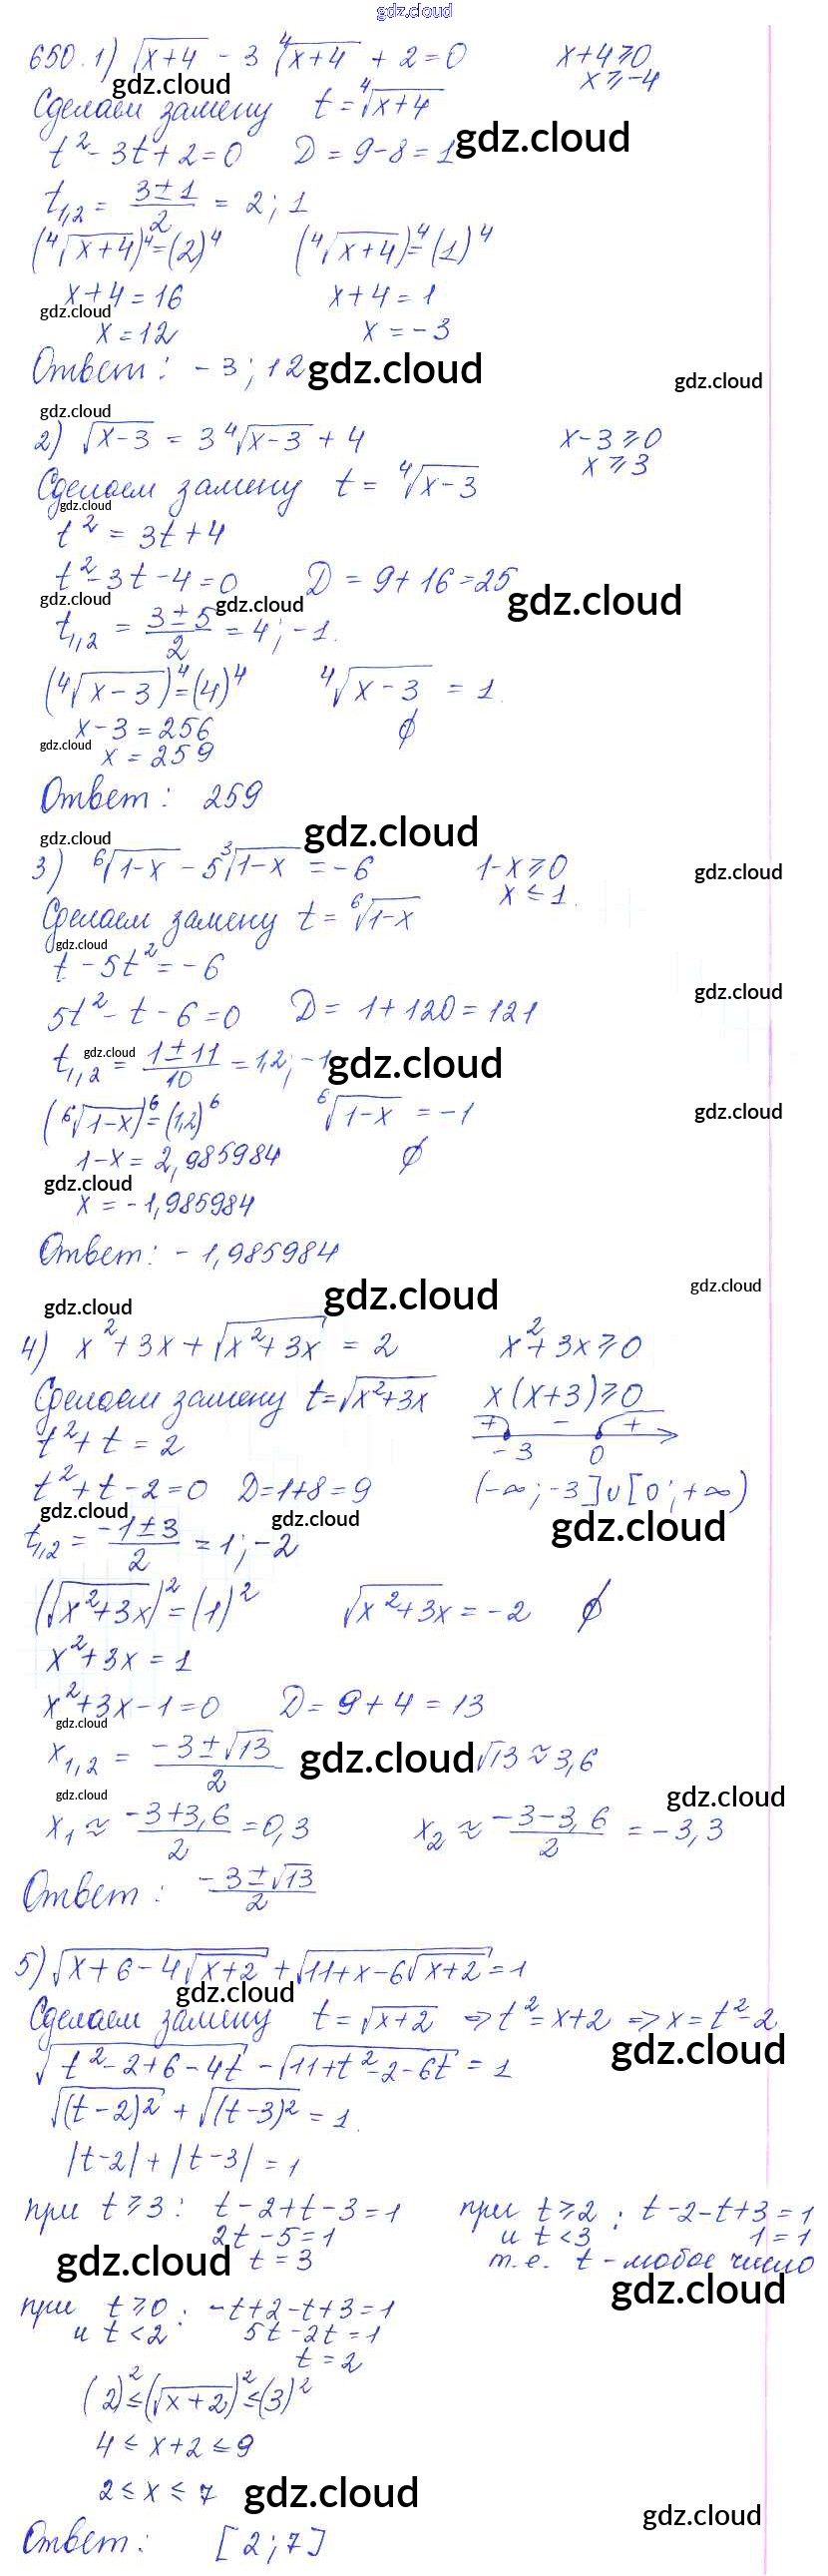 gdz.cloud
650. 1) √(x+4) - 3 ∜(x+4) + 2 = 0    x+4 ≥ 0
x ≥ -4
gdz.cloud
Сделаем замену t = ∜(x+4)
gdz.cloud
t² - 3t + 2 = 0    D = 9-8 = 1
t₁,₂ = (3±1)/2 = 2; 1
(∜(x+4))⁴ = (2)⁴    (∜(x+4))⁴ = (1)⁴
x+4 = 16    x+4 = 1
gdz.cloud
x = 12    x = -3
Ответ: -3; 12
gdz.cloud gdz.cloud
gdz.cloud
2) √(x-3) = 3∜(x-3) + 4    x-3 ≥ 0
x ≥ 3
Сделаем замену t = ∜(x-3)
gdz.cloud
t² = 3t + 4
t² - 3t - 4 = 0    D = 9 + 16 = 25
gdz.cloud gdz.cloud gdz.cloud
t₁,₂ = (3±5)/2 = 4; -1.
(∜(x-3))⁴ = (4)⁴    ∜(x-3) = 1.
x-3 = 256    ∅
gdz.cloud
x = 259
Ответ: 259
gdz.cloud gdz.cloud
3) ⁶√(1-x) - 5∛(1-x) = -6    1-x ≥ 0
gdz.cloud
x ≤ 1.
Сделаем замену t = ⁶√(1-x)
gdz.cloud
t - 5t² = -6
gdz.cloud
5t² - t - 6 = 0    D = 1 + 120 = 121
gdz.cloud gdz.cloud
t₁,₂ = (1±11)/10 = 1,2; -1
(⁶√(1-x))⁶ = (1,2)⁶    ⁶√(1-x) = -1
gdz.cloud
1-x = 2,985984    ∅
gdz.cloud
x = -1,985984
Ответ: -1,985984
gdz.cloud gdz.cloud gdz.cloud
4) x² + 3x + √(x²+3x) = 2    x² + 3x ≥ 0
Сделаем замену t = √(x²+3x)    x(x+3) ≥ 0
t² + t = 2    + - +
-3 0
t² + t - 2 = 0    D = 1+8 = 9    (-∞; -3] ∪ [0; +∞)
gdz.cloud gdz.cloud gdz.cloud
t₁,₂ = (-1±3)/2 = 1; -2
(√(x²+3x))² = (1)²    √(x²+3x) = -2    ∅
x² + 3x = 1
x² + 3x - 1 = 0    D = 9 + 4 = 13
gdz.cloud
x₁,₂ = (-3±√13)/2    √13 ≈ 3,6
gdz.cloud
gdz.cloud gdz.cloud
x₁ ≈ (-3+3,6)/2 = 0,3    x₂ ≈ (-3-3,6)/2 = -3,3
Ответ: (-3±√13)/2
5) √(x+6-4√(x+2)) + √(11+x-6√(x+2)) = 1
gdz.cloud
Сделаем замену t = √(x+2) ⇒ t² = x+2 ⇒ x = t²-2
gdz.cloud
√(t²-2+6-4t) - √(11+t²-2-6t) = 1
√((t-2)²) + √((t-3)²) = 1.
|t-2| + |t-3| = 1
при t ≥ 3: t-2+t-3 = 1    при t ≥ 2 : t-2-t+3 = 1
2t - 5 = 1    и t < 3    1 = 1
gdz.cloud
t = 3    т.е. t - любое число
gdz.cloud
при t ≥ 0 : -t+2-t+3 = 1
и t < 2    5t - 2t = 1
t = 2
(2)² ≤ (√(x+2))² ≤ (3)²
4 ≤ x+2 ≤ 9
2 ≤ x ≤ 7
gdz.cloud
gdz.cloud
Ответ: [2; 7]